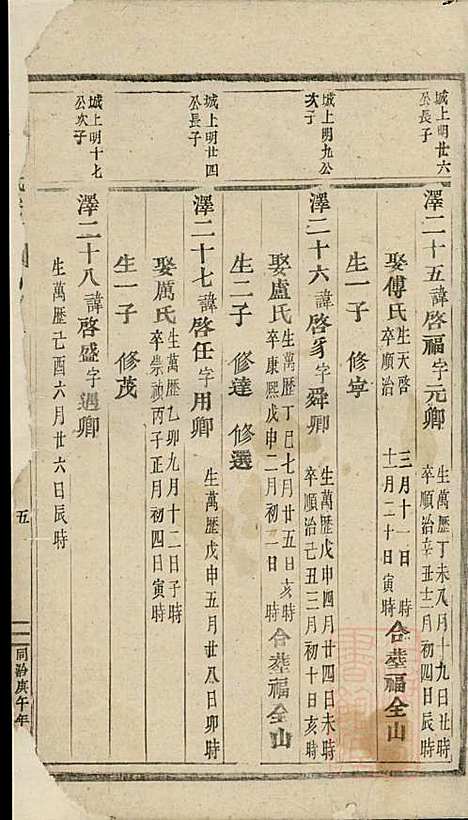 城上明廿六
公長子
澤二十五諱啓福字元卿
生萬歷丁未八月十九日丑時
卒順治辛丑十二月初四日辰時
娶傅氏
生天啓 三月十一日 時
卒順治 十一月二十日寅時
合塟福全山
生一子 修寧
城上明九公
次子
澤二十六諱啓 字舜卿
生萬歷戊申四月廿四日未時
卒順治己丑三月初十日亥時
娶盧氏
生萬歷丁巳七月廿五日亥時
卒康熙戊申二月初二日 時
合塟福全山
生二子 修達 修選
城上明廿四
公長子
澤二十七諱啓任字用卿
生萬歷戊申五月廿八日卯時
娶厲氏
生萬歷乙卯九月十二日子時
卒崇禎丙子正月初四日寅時
生一子 修茂
城上明十七
公次子
澤二十八諱啓盛字遇卿
生萬歷己酉六月廿六日辰時
五
同治庚午年